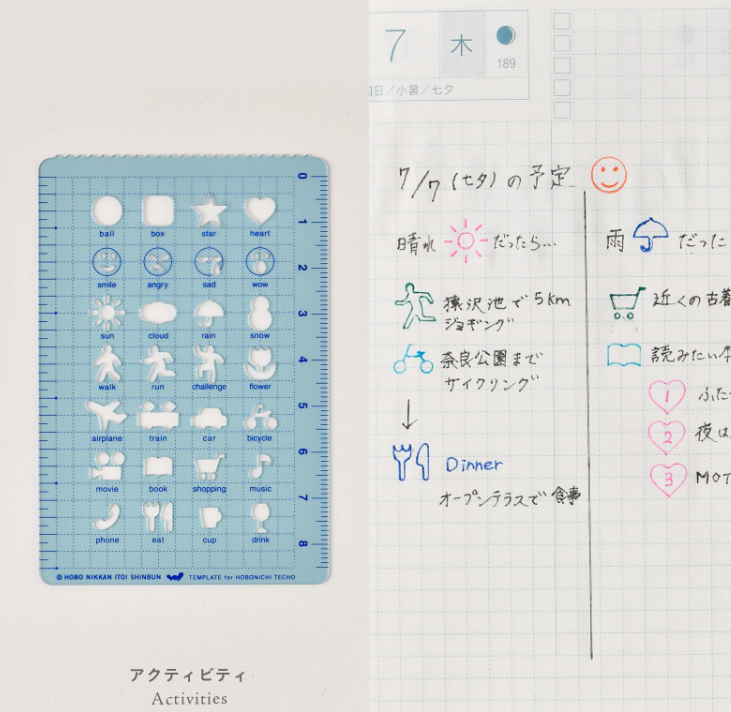 0
ball box star heart
1
smile angry sad wow
2
sun cloud rain snow
3
walk run challenge flower
4
airplane train car bicycle
5
movie book shopping music
6
phone eat cup drink
7
8
© HOBO NIKKAN ITOI SHINBUN TEMPLATE for HOBONICHI TECHO
アクティビティ
Activities
7 木
189
日/小暑/七夕
7/7 (七夕) の予定
晴れ だったら…
猿沢池で 5km
ジョギング
奈良公園まで
サイクリング
Dinner
オープンテラスで 食事
雨 だった
近くの古着
読みたい本
1 ふた
2 夜は
3 MOT